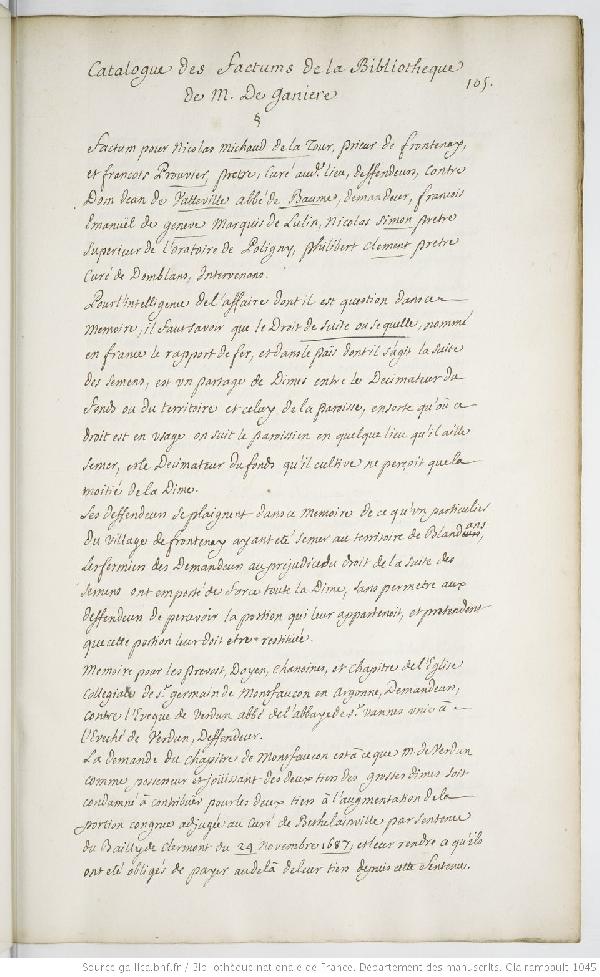 Catalogue des Factums de la Bibliotheque
de M. De ganiere
105.
§
Factum pour Nicolas Michaud de la Tour, prieur de frontenay,
et francois Prouvier, pretre, Curé aud. lieu, deffendeurs, Contre
Dom Jean de Vatteville abbé de Baume, demandeur, francois
Emanüel de geneve Marquis de Lulin, Nicolas Simon pretre
Superieur de l'oratoire de Poligny, philibert Clement pretre
Curé de Domblans, Intervenans.
Pour l'intelligence de l'affaire dont il est question dans ce
Memoire, il faut savoir que le Droit de suite ou sequelle, nommé
en france le rapport de fer, et dans le païs dont il s'agit la suite
des semens, est un partage de Dimes entre le Decimateur du
fonds ou du territoire et celuy de la paroisse, ensorte qu'où ce
droit est en usage on suit le paroissien en quelque lieu qu'il aille
semer, et le Decimateur du fonds qu'il cultive ne perçoit que la
moitié de la Dime.
Les deffendeurs se plaignent dans ce Memoire de ce qu'un particulier
du village de frontenay ayant eté semer au territoire de Blandans,
Les fermiers des Demandeur au prejudice du droit de la suite des
semens ont emporté de force toute la Dime, sans permetre aux
deffendeurs de percevoir la portion qui leur appartenoit, et pretendent
que cette portion leur doit etre restituée.
Memoire pour les prevost, Doyen, Chanoines, et Chapitre de l'Eglise
Collegiale de St. germain de Montfaucon en argonne, Demandeurs,
contre l'Eveque de Verdun abbé de l'abbaye de St. Vannes unie à
l'Evéché de Verdun, Deffendeur.
La demande du Chapitre de Montfaucon est à ce que M. de Verdun
comme possesseur et joüissant des deux tiers des grosses dimes soit
condamné à contribüer pour les deux tiers à l'augmentation de la
portion congrue adjugée au Curé de Bethelainville par sentence
du Bailly de Clermont du 29 Novembre 1687, et leur rendre ce qu'ils
ont eté obligés de payer au delà de leur tiers depuis cette Sentence.
Source gallica.bnf.fr / Bibliothèque nationale de France. Département des manuscrits. Clairambault 1045